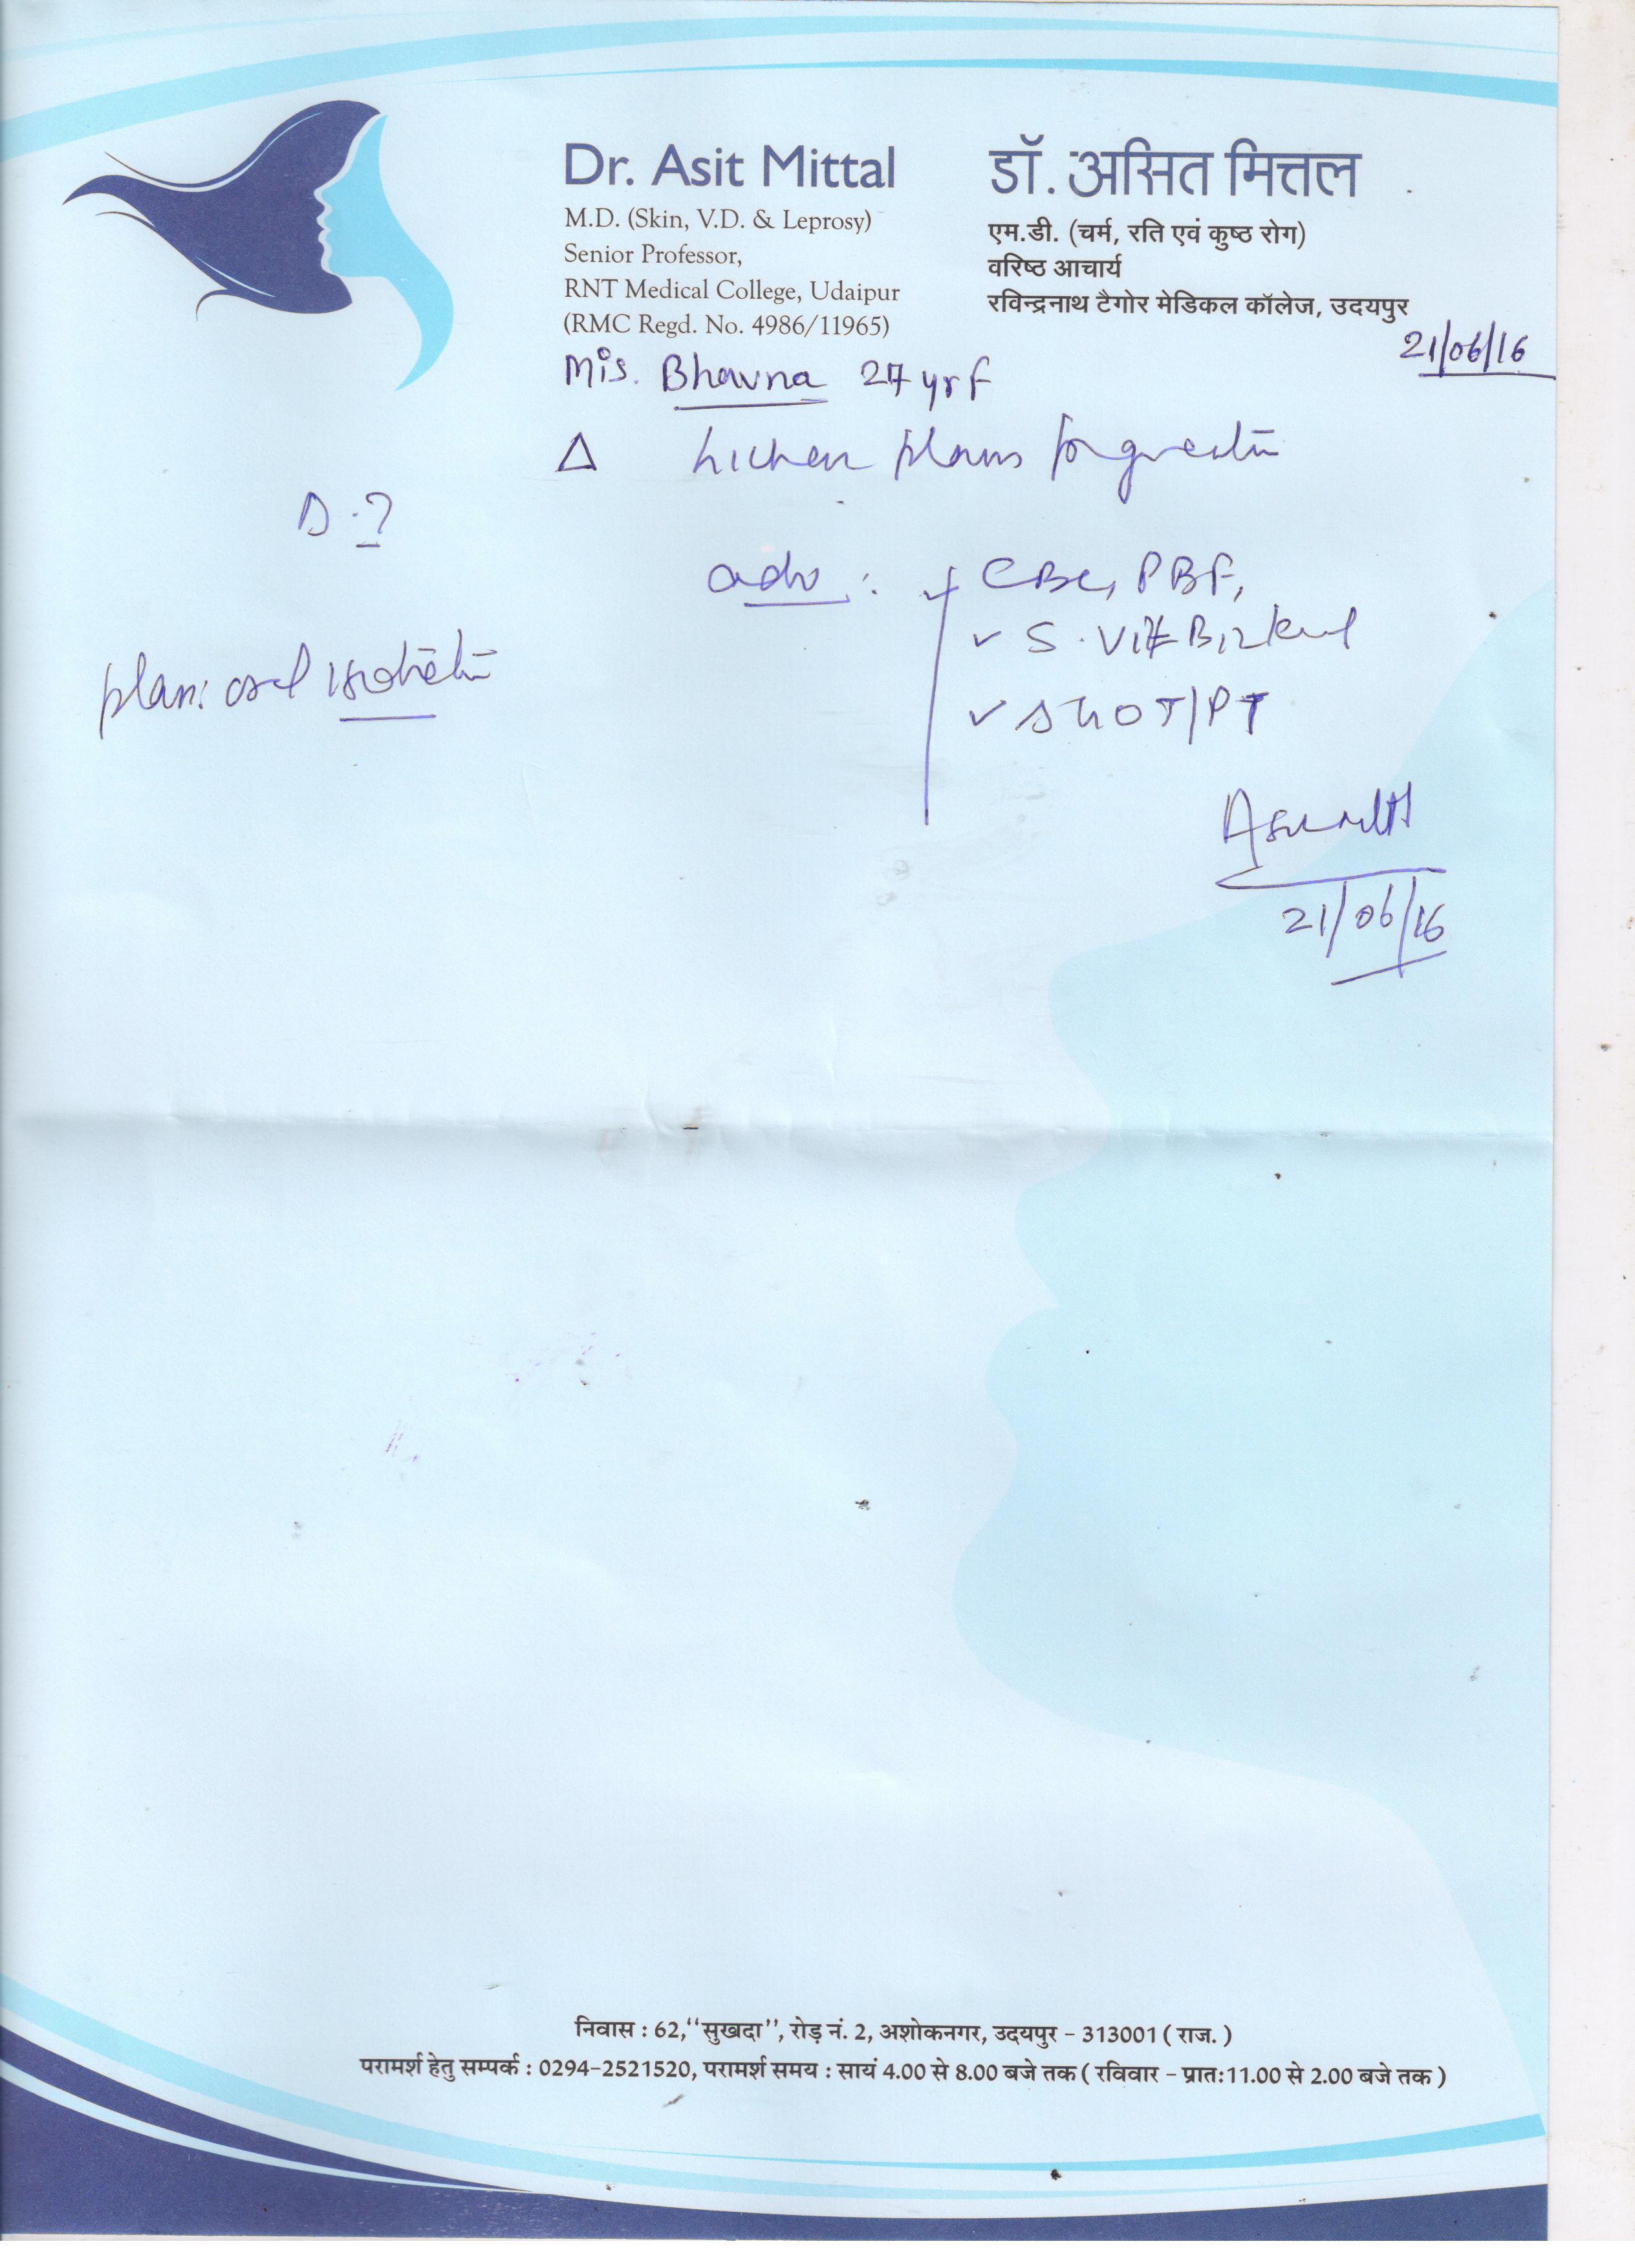 Dr. Asit Mittal
M.D. (Skin, V.D. & Leprosy)
Senior Professor,
RNT Medical College, Udaipur
(RMC Regd. No. 4986/11965)
डॉ. असित मित्तल
एम.डी. (चर्म, रति एवं कुष्ठ रोग)
वरिष्ठ आचार्य
रविन्द्रनाथ टैगोर मेडिकल कॉलेज, उदयपुर
21/06/16
Mis. Bhavna 27 yr F
Δ Lichen planus
D.?
adv : CBC, PBF,
S. Vit B12 level
SGOT/PT
plan: oral
21/06/16
निवास : 62,‘‘सुखदा’’, रोड़ नं. 2, अशोकनगर, उदयपुर - 313001 ( राज. )
परामर्श हेतु सम्पर्क : 0294-2521520, परामर्श समय : सायं 4.00 से 8.00 बजे तक ( रविवार - प्रातः11.00 से 2.00 बजे तक )